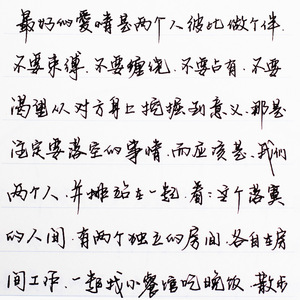 最好的爱情是两个人彼此做个伴.
不要束缚.不要缠绕.不要占有.不要
渴望从对方身上挖掘到意义.那是
注定要落空的事情.而应该是.我们
两个人.并排站在一起.看看这个落寞
的人间.有两个独立的房间.各自在房
间工作.一起找小餐馆吃晚饭.散步